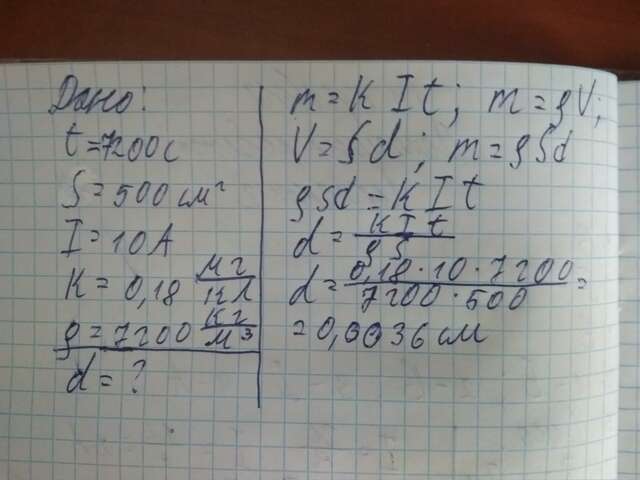 Дано:
t=7200с
S=500 см²
I=10А
K=0,18 мг/Кл
ρ=7200 кг/м³
d=?
m=K I t; m=ρV;
V=Sd; m=ρSd
ρSd=KIt
d=KIt/ρS
d=0,18·10·7200/7200·500=
=0,0036см